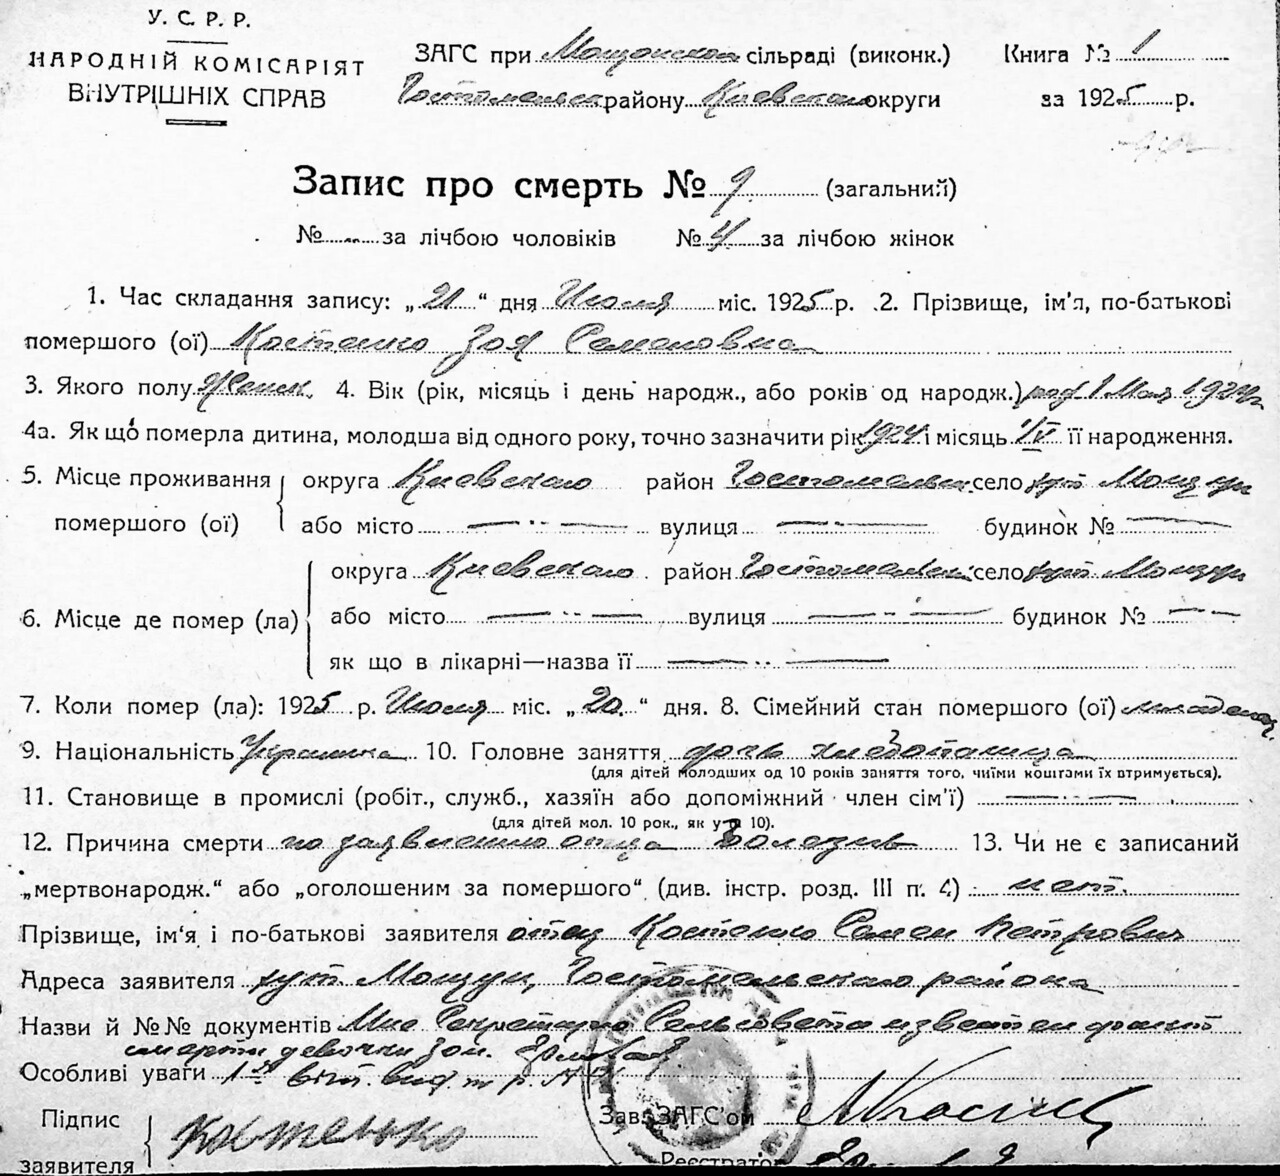 У. С. Р. Р.
НАРОДНІЙ КОМІСАРІЯТ
ВНУТРІШНІХ СПРАВ
ЗАГС при Мощонской сільраді (виконк.)
Гостомельск району Киевской округи
Книга № 1
за 1925 р.
Запис про смерть № 9 (загальний)
№ за лічбою чоловіків № 4 за лічбою жінок
1. Час складання запису: „21“ дня Июля міс. 1925 р. 2. Прізвище, ім'я, по-батькові
помершого (ої) Костенко Зоя Семеновна
3. Якого полу Женск. 4. Вік (рік, місяць і день народж., або років од народж.) род 1 Мая 1924 г
4а. Як що померла дитина, молодша від одного року, точно зазначити рік 1924 і місяць IV її народження.
5. Місце проживання помершого (ої)
округа Киевского район Гостомельск село хут Мощун
або місто вулиця будинок №
6. Місце де помер (ла)
округа Киевского район Гостомельск село хут Мощун
або місто вулиця будинок №
як що в лікарні—назва її
7. Коли помер (ла): 1925 р. Июля міс. „20“ дня. 8. Сімейний стан помершого (ої) младенец
9. Національність Украинка 10. Головне заняття дочь хлебопашца
(для дітей молодших од 10 років заняття того, чиїми коштами їх втримується).
11. Становище в промислі (робіт., служб., хазяїн або допоміжний член сім'ї)
(для дітей мол. 10 рок., як у п 10).
12. Причина смерти по заявлению отца болезнь 13. Чи не є записаний
„мертвонародж.“ або „оголошеним за помершого“ (див. інстр. розд. III п. 4) нет.
Прізвище, ім'я і по-батькові заявителя отец Костенко Семен Петрович
Адреса заявителя хут Мощун, Гостомельского района
Назви й №№ документів Мне Секретарю Сельсовета известен факт
смерти девочки Зои.
Особливі уваги
Підпис
заявителя
Костенко
Зав. ЗАГС'ом
Реєстратор